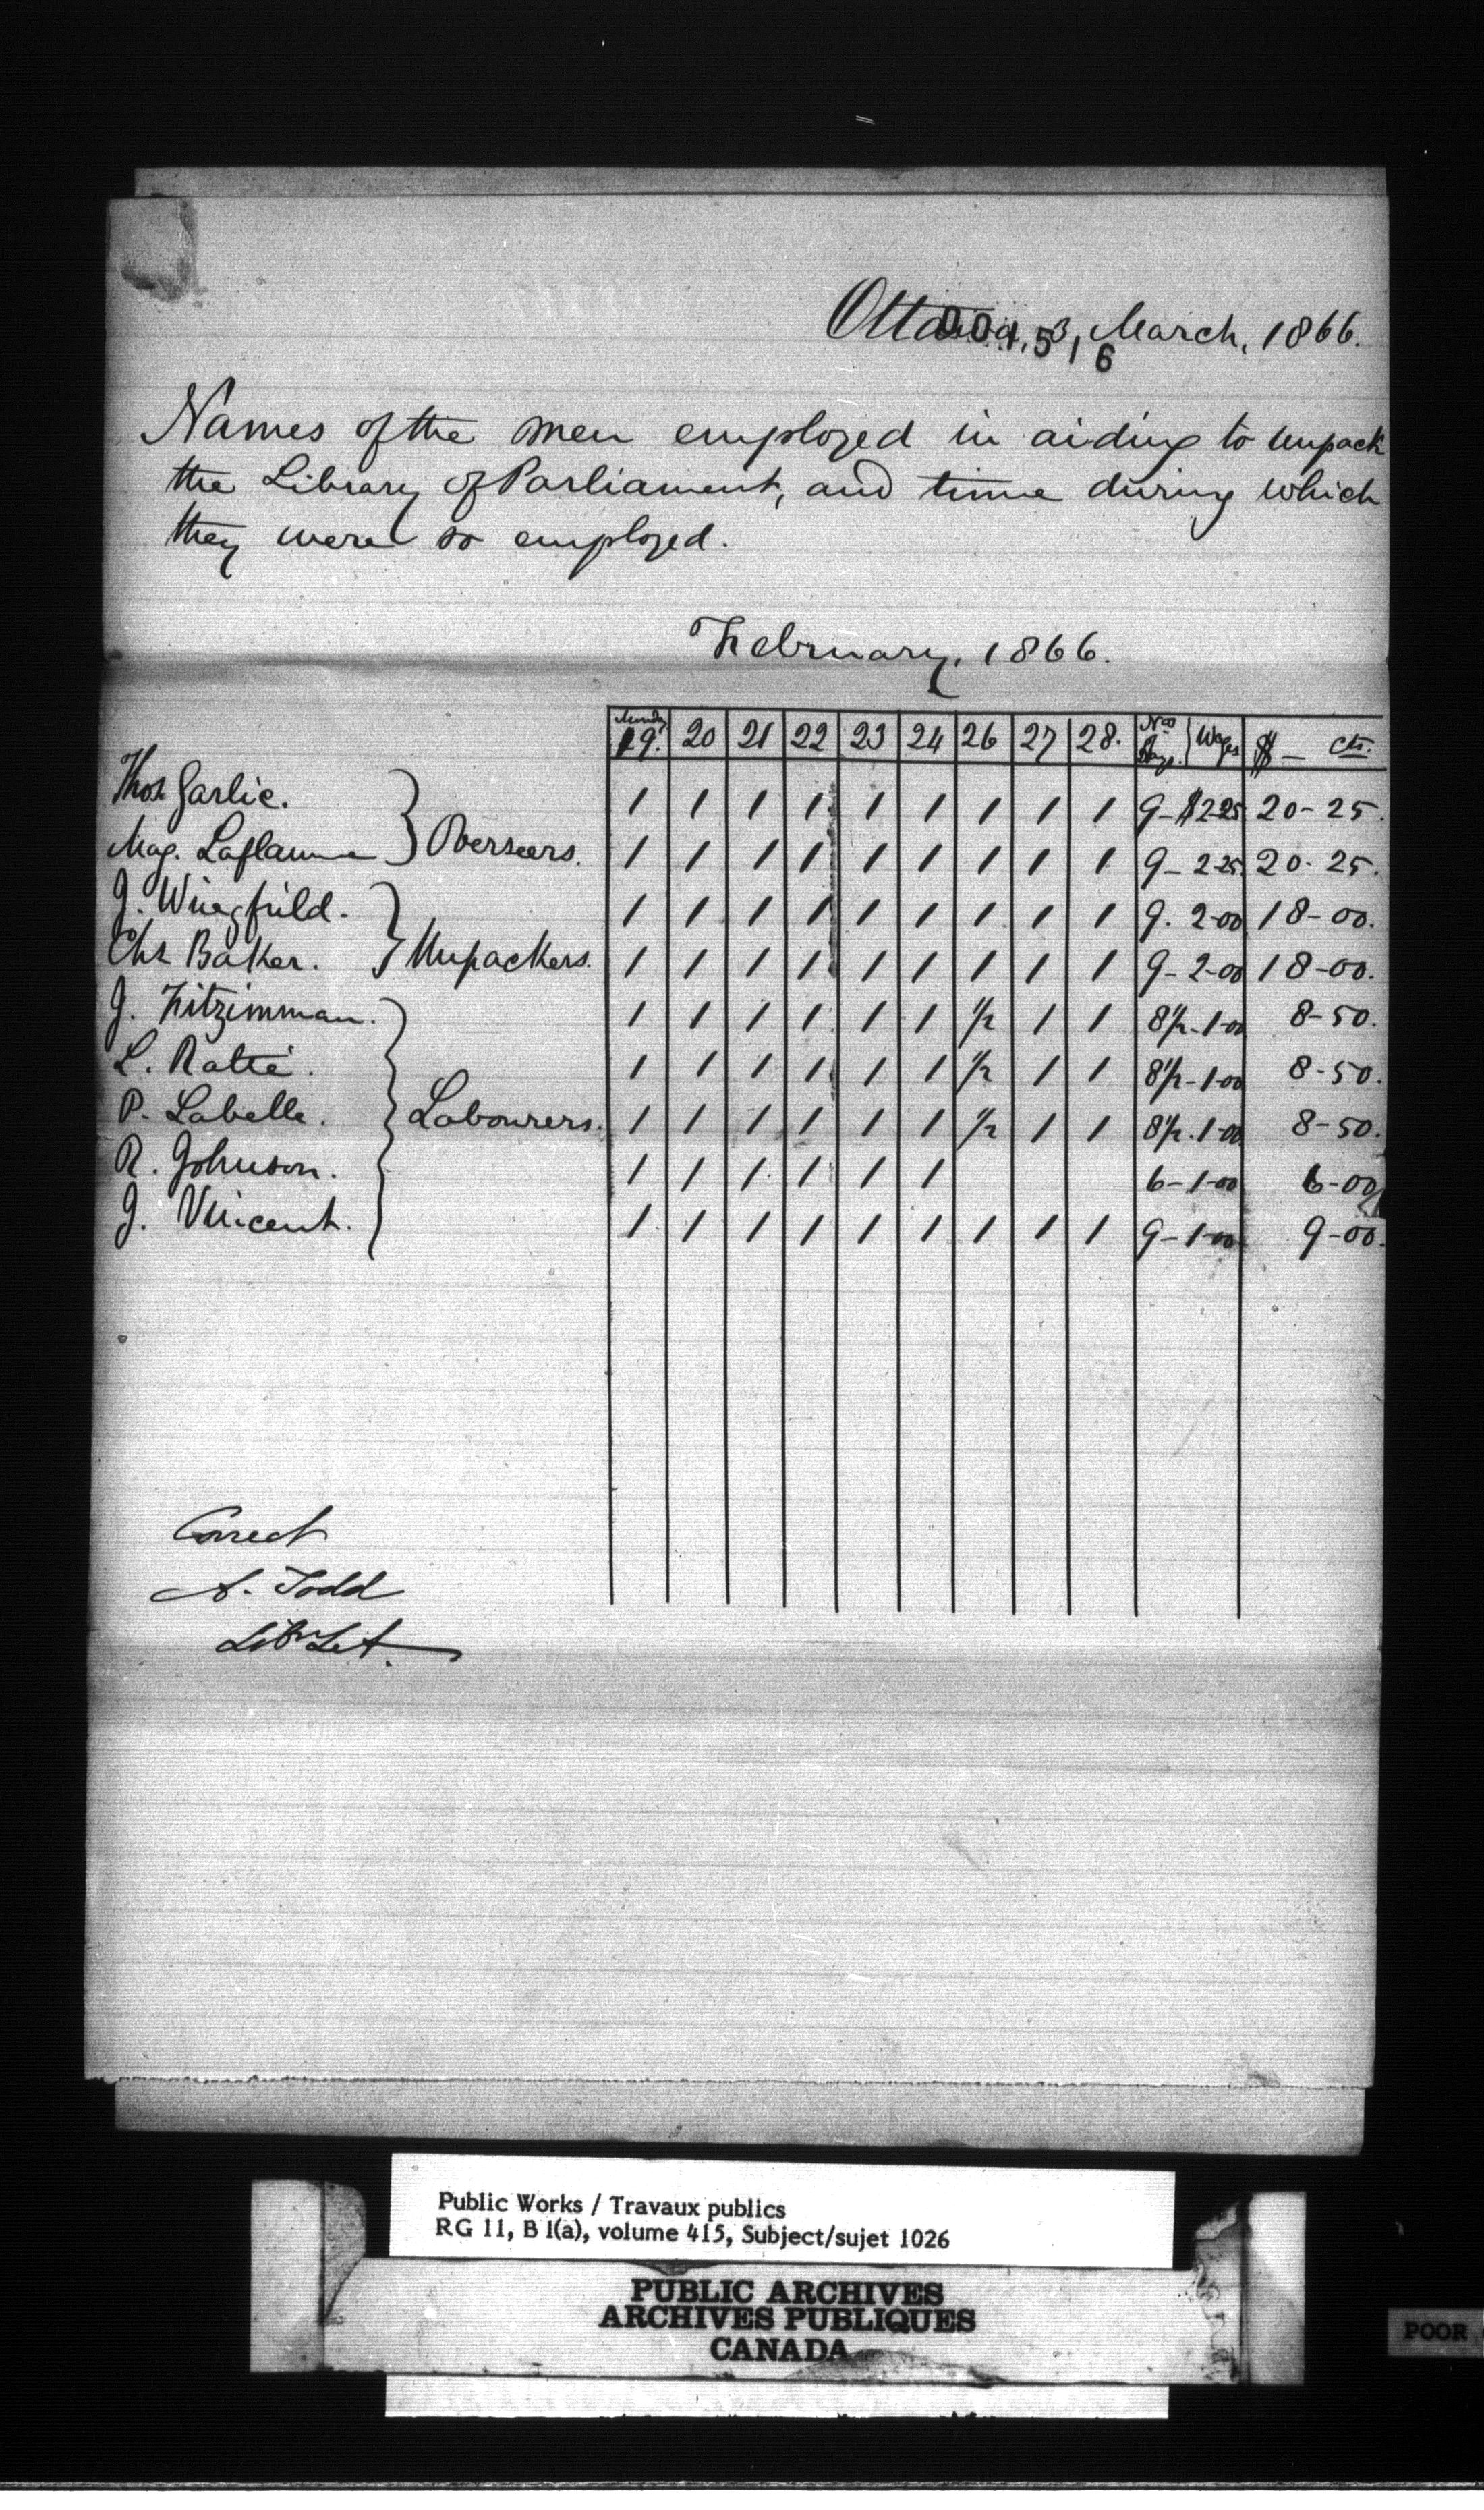 Ottawa, 3, March, 1866.
001516
Names of the men employed in aiding to unpack
the Library of Parliament, and time during which
they were so employed.
February, 1866.
Monday 19. 20 21 22 23 24 26 27 28. Nos Days. Wages $ — cts.
Thos. Garlic. 1 1 1 1 1 1 1 1 1 9 - $2-25 20 - 25.
Mag. Laflamme } Overseers. 1 1 1 1 1 1 1 1 1 9 - 2-25 20 - 25.
J. Wingfield. 1 1 1 1 1 1 1 1 1 9. 2-00 18 - 00.
Chs Baker. } Unpackers. 1 1 1 1 1 1 1 1 1 9 - 2-00 18 - 00.
J. Fitzimman. 1 1 1 1 1 1 1/2 1 1 8 1/2 - 1-00 8 - 50.
L. Ratté. 1 1 1 1 1 1 1/2 1 1 8 1/2 - 1-00 8 - 50.
P. Labelle. } Labourers. 1 1 1 1 1 1 1/2 1 1 8 1/2 . 1-00 8 - 50.
R. Johnson. 1 1 1 1 1 1 6 - 1-00 6 - 00
J. Vincent. 1 1 1 1 1 1 1 1 1 9 - 1-00 9 - 00.
Correct
A. Todd
Public Works / Travaux publics
RG 11, B 1(a), volume 415, Subject/sujet 1026
PUBLIC ARCHIVES
ARCHIVES PUBLIQUES
CANADA
POOR